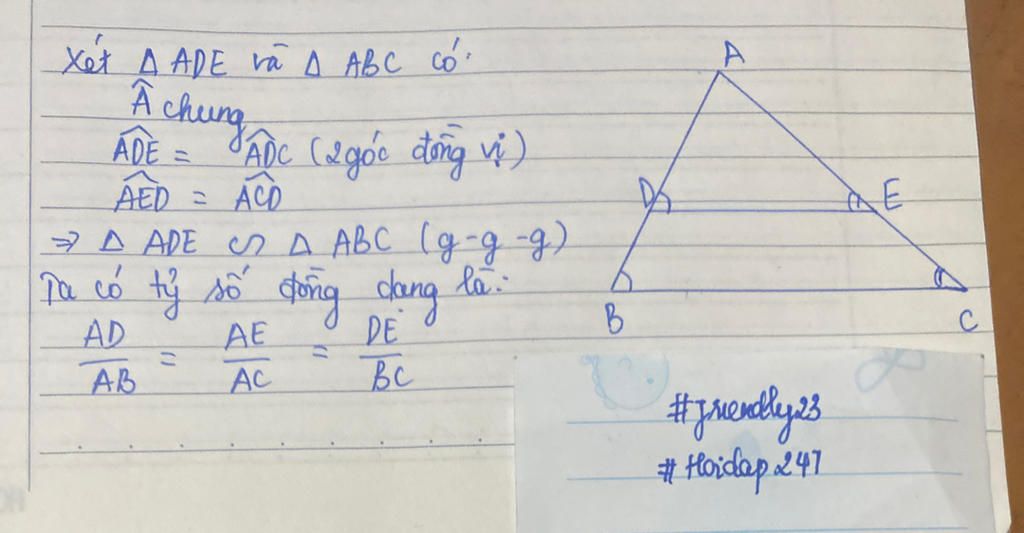 Xét Δ ADE và Δ ABC có:
Â chung
ADE = ADC (2 góc đồng vị)
AED = ACD
⇒ Δ ADE ∽ Δ ABC (g-g-g)
Ta có tỷ số đồng dạng là:
AD/AB = AE/AC = DE/BC
A
D E
B C
#friendly23
#Hoidap247